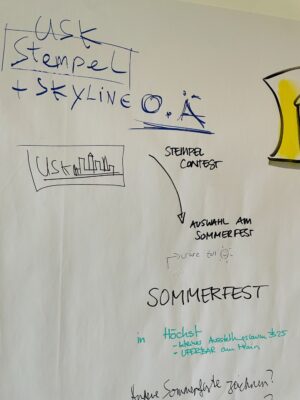 USK
Stempel
+ SKYLINE O.Ä
STEMPEL
CONTEST
USK
AUSWAHL AM
SOMMERFEST
SOMMERFEST
in Höchst
- kleines Ausstellungsraum
- UFERBAR am Main
Sommerfeste zeichnen?